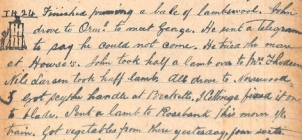 TH 24 Finished pressing a bale of lambswool. John
drove to Orms. to meet George. He sent a Telegram
to say he could not come. He tried the mare
at House's. Thos. took half a lamb over to Mrs.
took half lamb. All drove to Norwood
I Got scythe handle at Becketts, fixed it on
to blade. Sent a lamb to Rosebank this morn by
train. Got vegetables from there yesterday, four sorts.